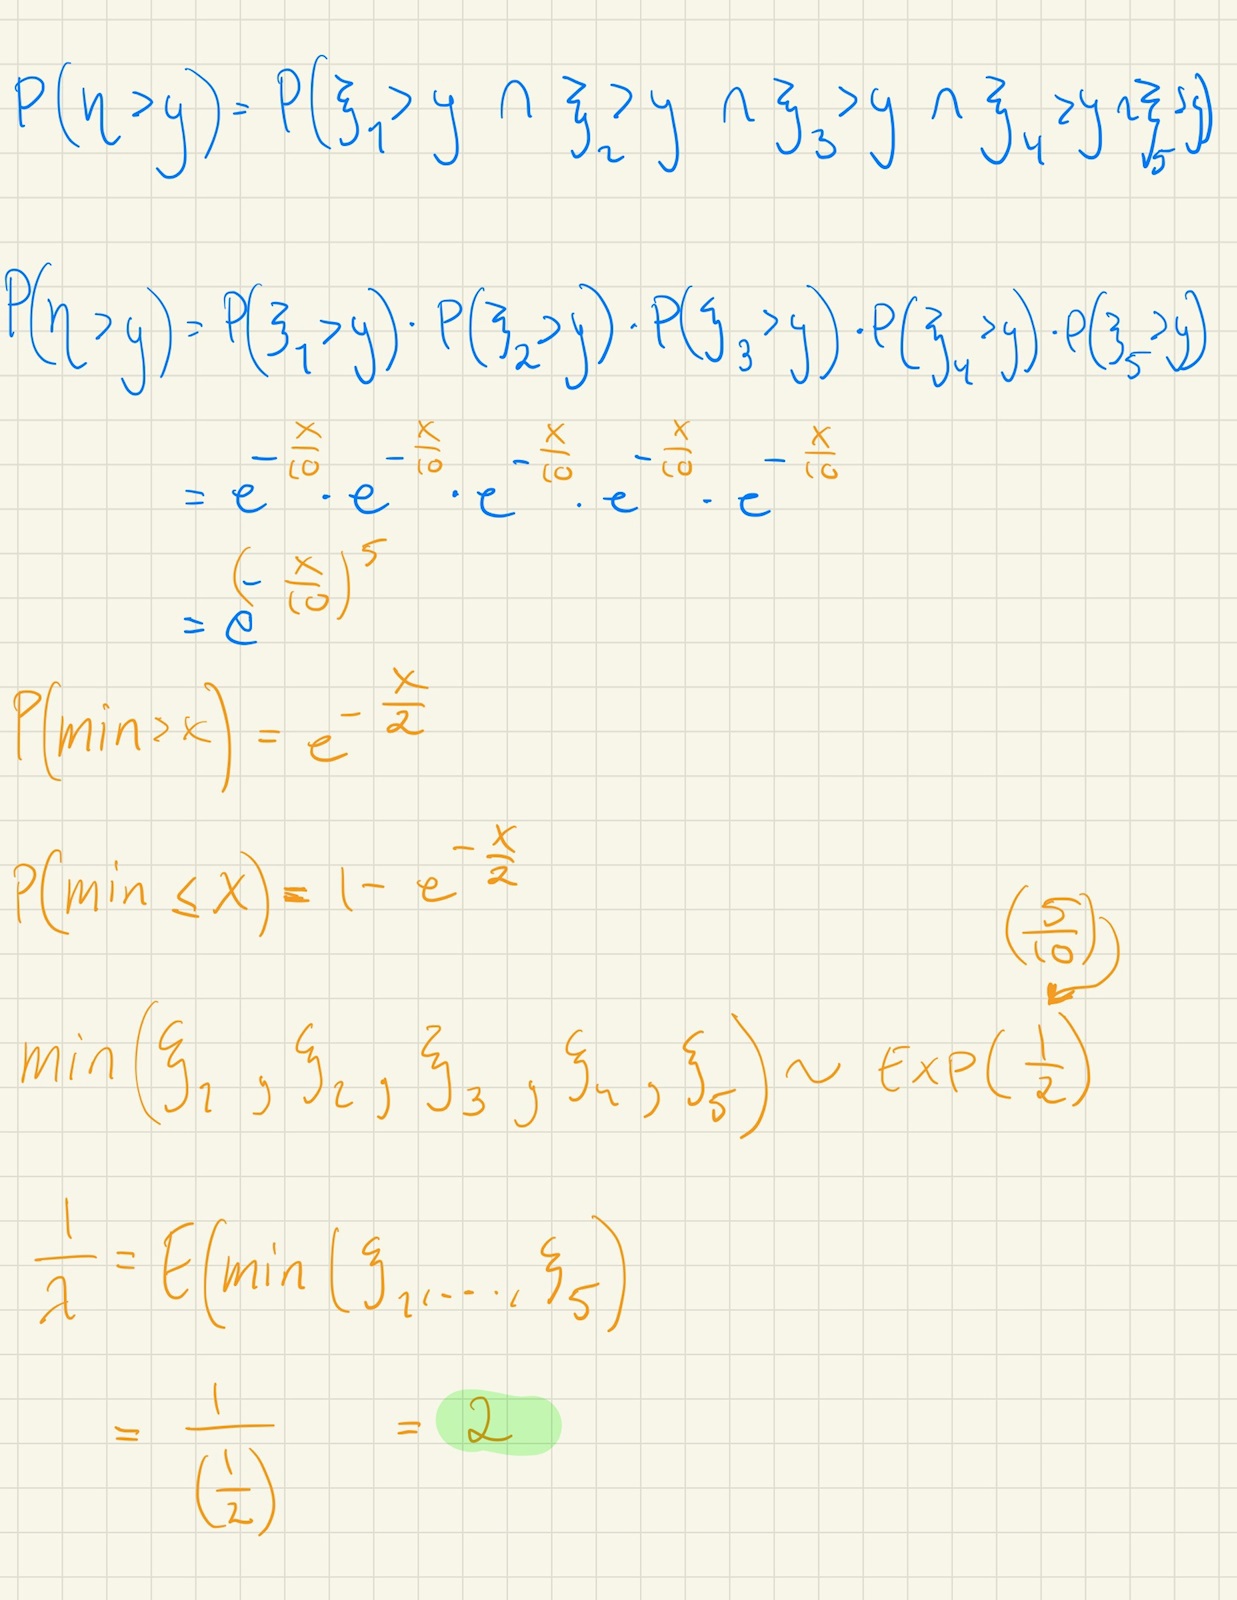 P(η>y) = P(ξ₁>y ∩ ξ₂>y ∩ ξ₃>y ∩ ξ₄>y ∩ ξ₅>y)
P(η>y) = P(ξ₁>y) · P(ξ₂>y) · P(ξ₃>y) · P(ξ₄>y) · P(ξ₅>y)
= e^(-x/10) · e^(-x/10) · e^(-x/10) · e^(-x/10) · e^(-x/10)
= e^((-x/10)^5)
P(min>x) = e^(-x/2)
P(min ≤ X) = 1 - e^(-x/2)
(5/10)
min(ξ₁, ξ₂, ξ₃, ξ₄, ξ₅) ~ EXP(1/2)
1/λ = E(min(ξ₁,...,ξ₅)
= 1/(1/2) = 2